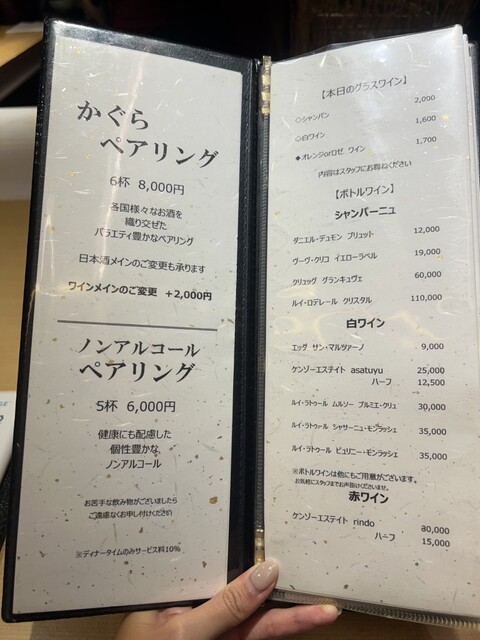 かぐら
ペアリング
6杯 8,000円
各国様々なお酒を
織り交ぜた
バラエティ豊かなペアリング
日本酒メインのご変更も承ります
ワインメインのご変更 +2,000円
ノンアルコール
ペアリング
5杯 6,000円
健康にも配慮した
個性豊かな
ノンアルコール
お苦手な飲み物がございましたら
ご遠慮なくお申し付けください
※ディナータイムのみサービス料10%
【本日のグラスワイン】
◇シャンパン 2,000
◇白ワイン 1,600
◆オレンジorロゼ ワイン 1,700
内容はスタッフにお尋ねください
【ボトルワイン】
シャンパーニュ
ダニエル・デュモン ブリュット 12,000
ヴーヴ・クリコ イエローラベル 19,000
クリュッグ グランキュヴェ 60,000
ルイ・ロデレール クリスタル 110,000
白ワイン
エッグ サン・マルツァーノ 9,000
ケンゾーエステイト asatuyu 25,000
ハーフ 12,500
ルイ・ラトゥール ムルソー プルミエ・クリュ 30,000
ルイ・ラトゥール シャサーニュ・モンラッシェ 35,000
ルイ・ラトゥール ピュリニー・モンラッシェ 35,000
※ボトルワインは他にもご用意がございます。
お気軽にスタッフまでお声掛けくださいませ。
赤ワイン
ケンゾーエステイト rindo 30,000
ハーフ 15,000